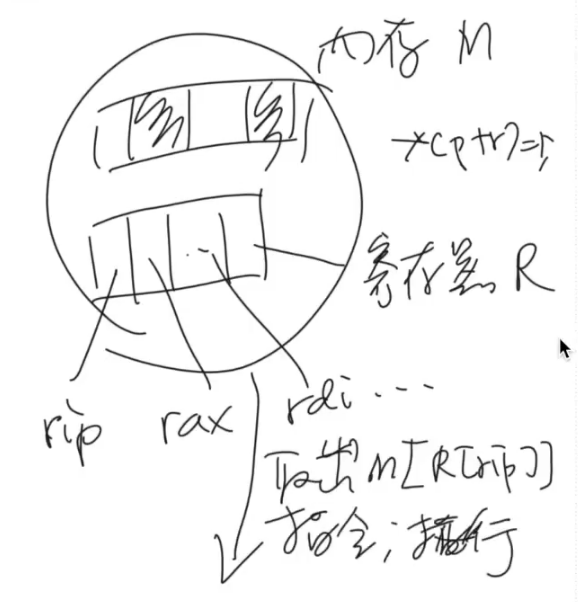 内存 M
*(ptr)=1;
寄存器 R
rip rax rdi...
取出M[R[rip]]
指令;执行